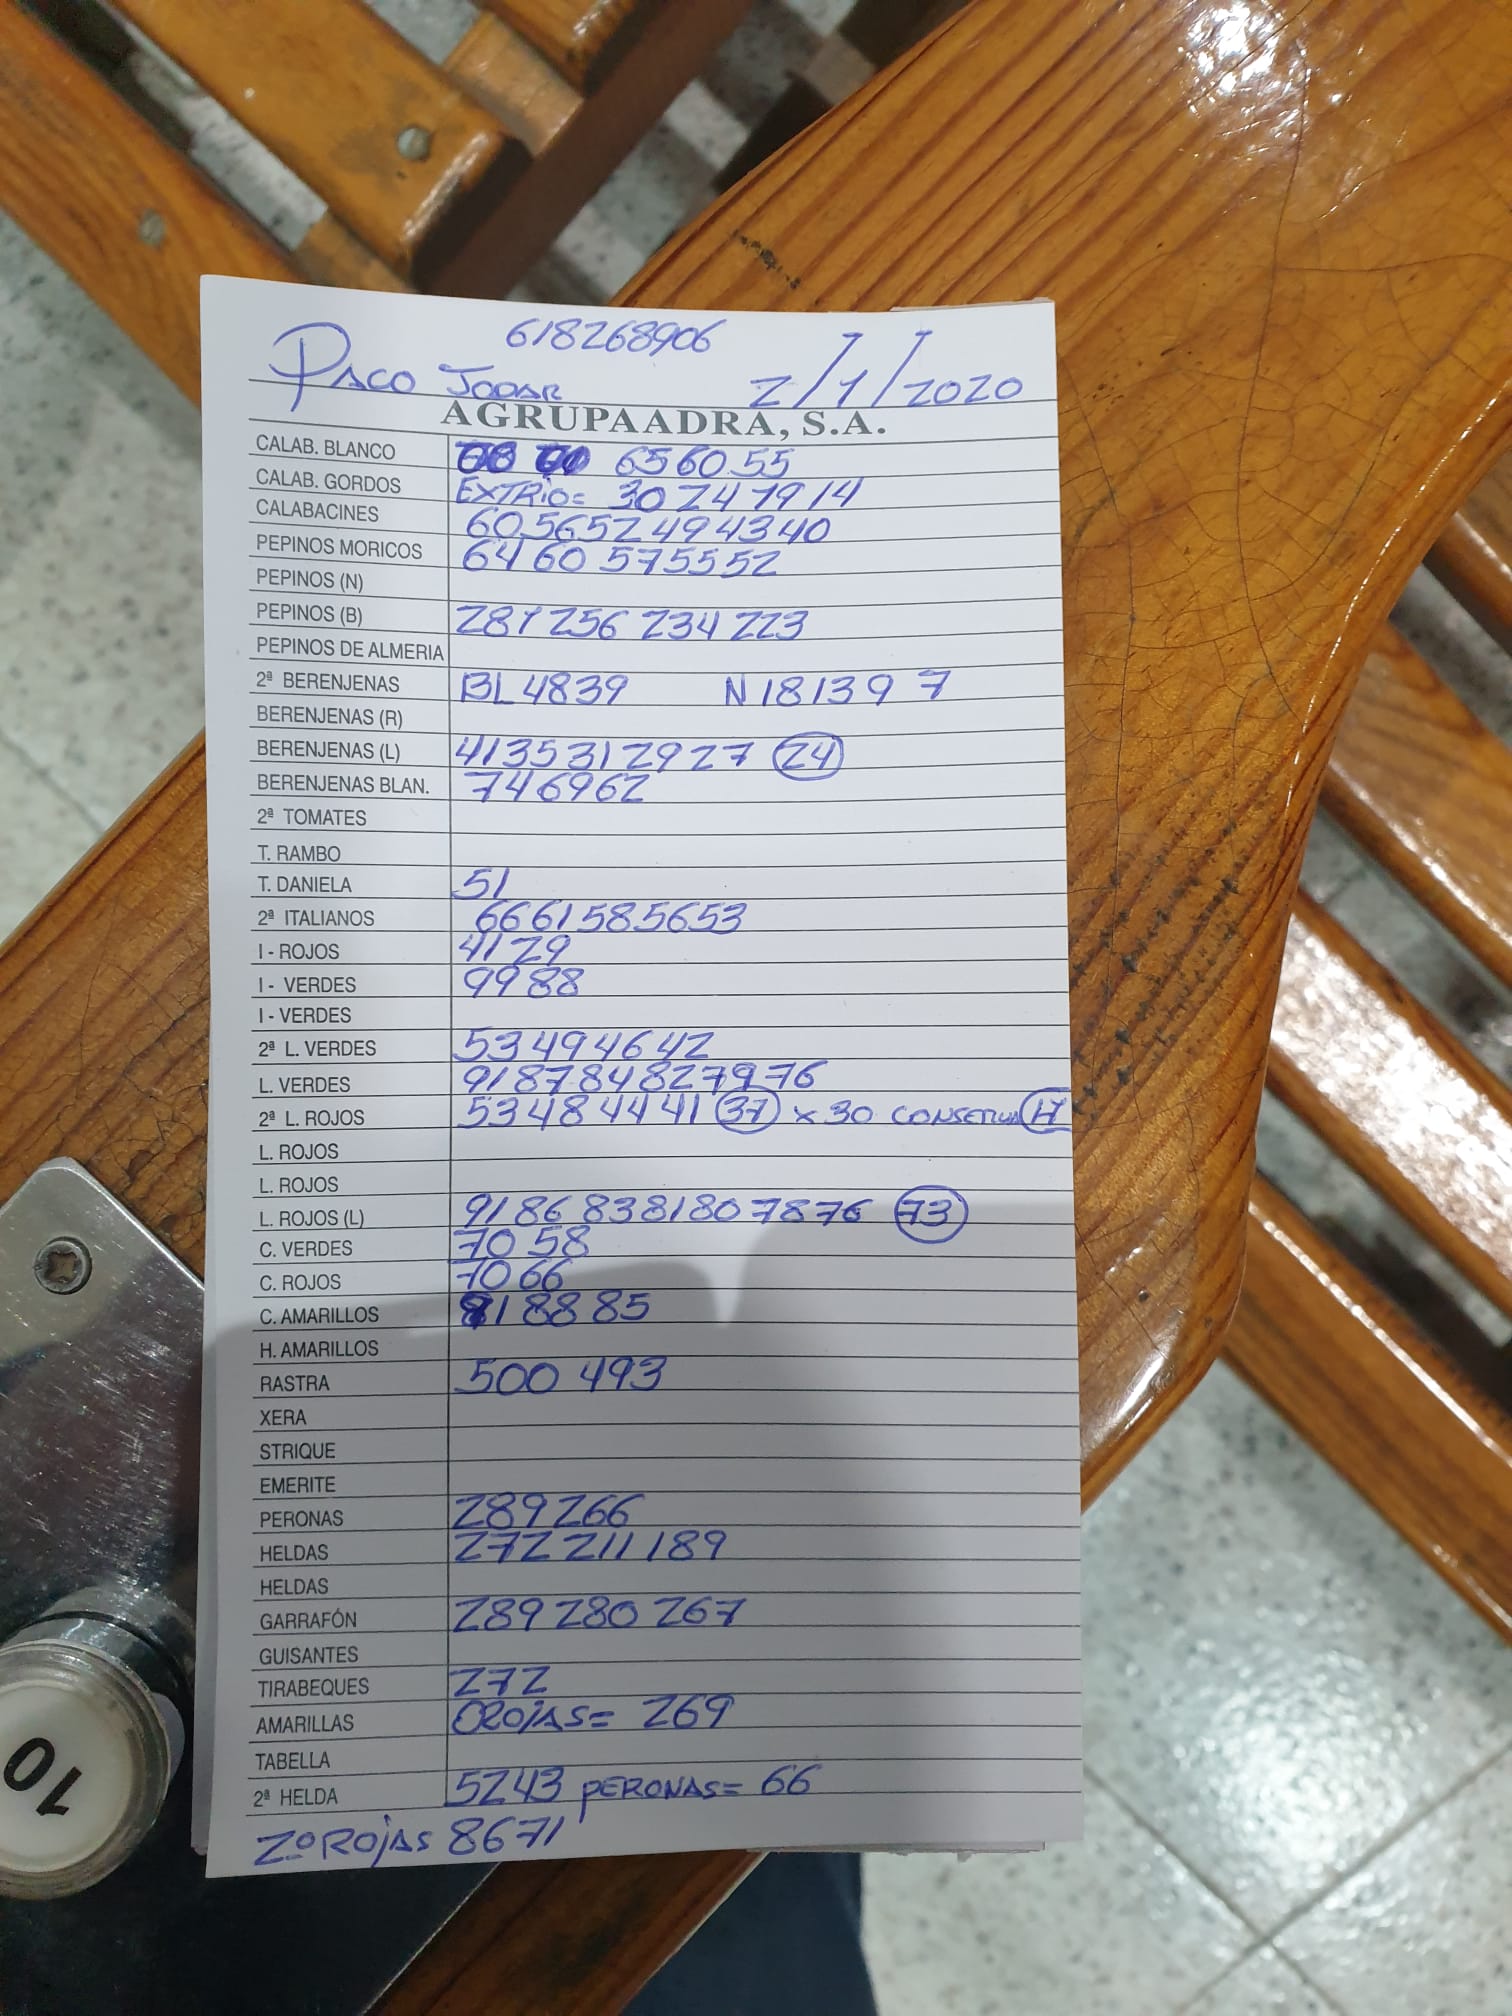 618268906
PACO JODAR 2/1/2020
AGRUPAADRA, S.A.
CALAB. BLANCO 65 60 55
CALAB. GORDOS EXTRIO= 30 24 19 14
CALABACINES 60 56 52 49 43 40
PEPINOS MORICOS 64 60 57 55 52
PEPINOS (N)
PEPINOS (B) 281 256 234 223
PEPINOS DE ALMERIA
2ª BERENJENAS BL 48 39 N 18 13 9 7
BERENJENAS (R)
BERENJENAS (L) 41 35 31 29 27 24
BERENJENAS BLAN. 74 69 62
2ª TOMATES
T. RAMBO
T. DANIELA 51
2ª ITALIANOS 66 61 58 56 53
I - ROJOS 41 29
I - VERDES 99 88
I - VERDES
2ª L. VERDES 53 49 46 42
L. VERDES 91 87 84 82 79 76
2ª L. ROJOS 53 48 44 41 37 x 30 CONSERVA 17
L. ROJOS
L. ROJOS
L. ROJOS (L) 91 86 83 81 80 78 76 73
C. VERDES 70 58
C. ROJOS 70 66
C. AMARILLOS 91 88 85
H. AMARILLOS
RASTRA 500 493
XERA
STRIQUE
EMERITE
PERONAS 289 266
HELDAS 272 211 189
HELDAS
GARRAFÓN 289 280 267
GUISANTES
TIRABEQUES 272
AMARILLAS ROJAS= 269
TABELLA
2ª HELDA 52 43 PERONAS= 66
2º ROJAS 86 71
10